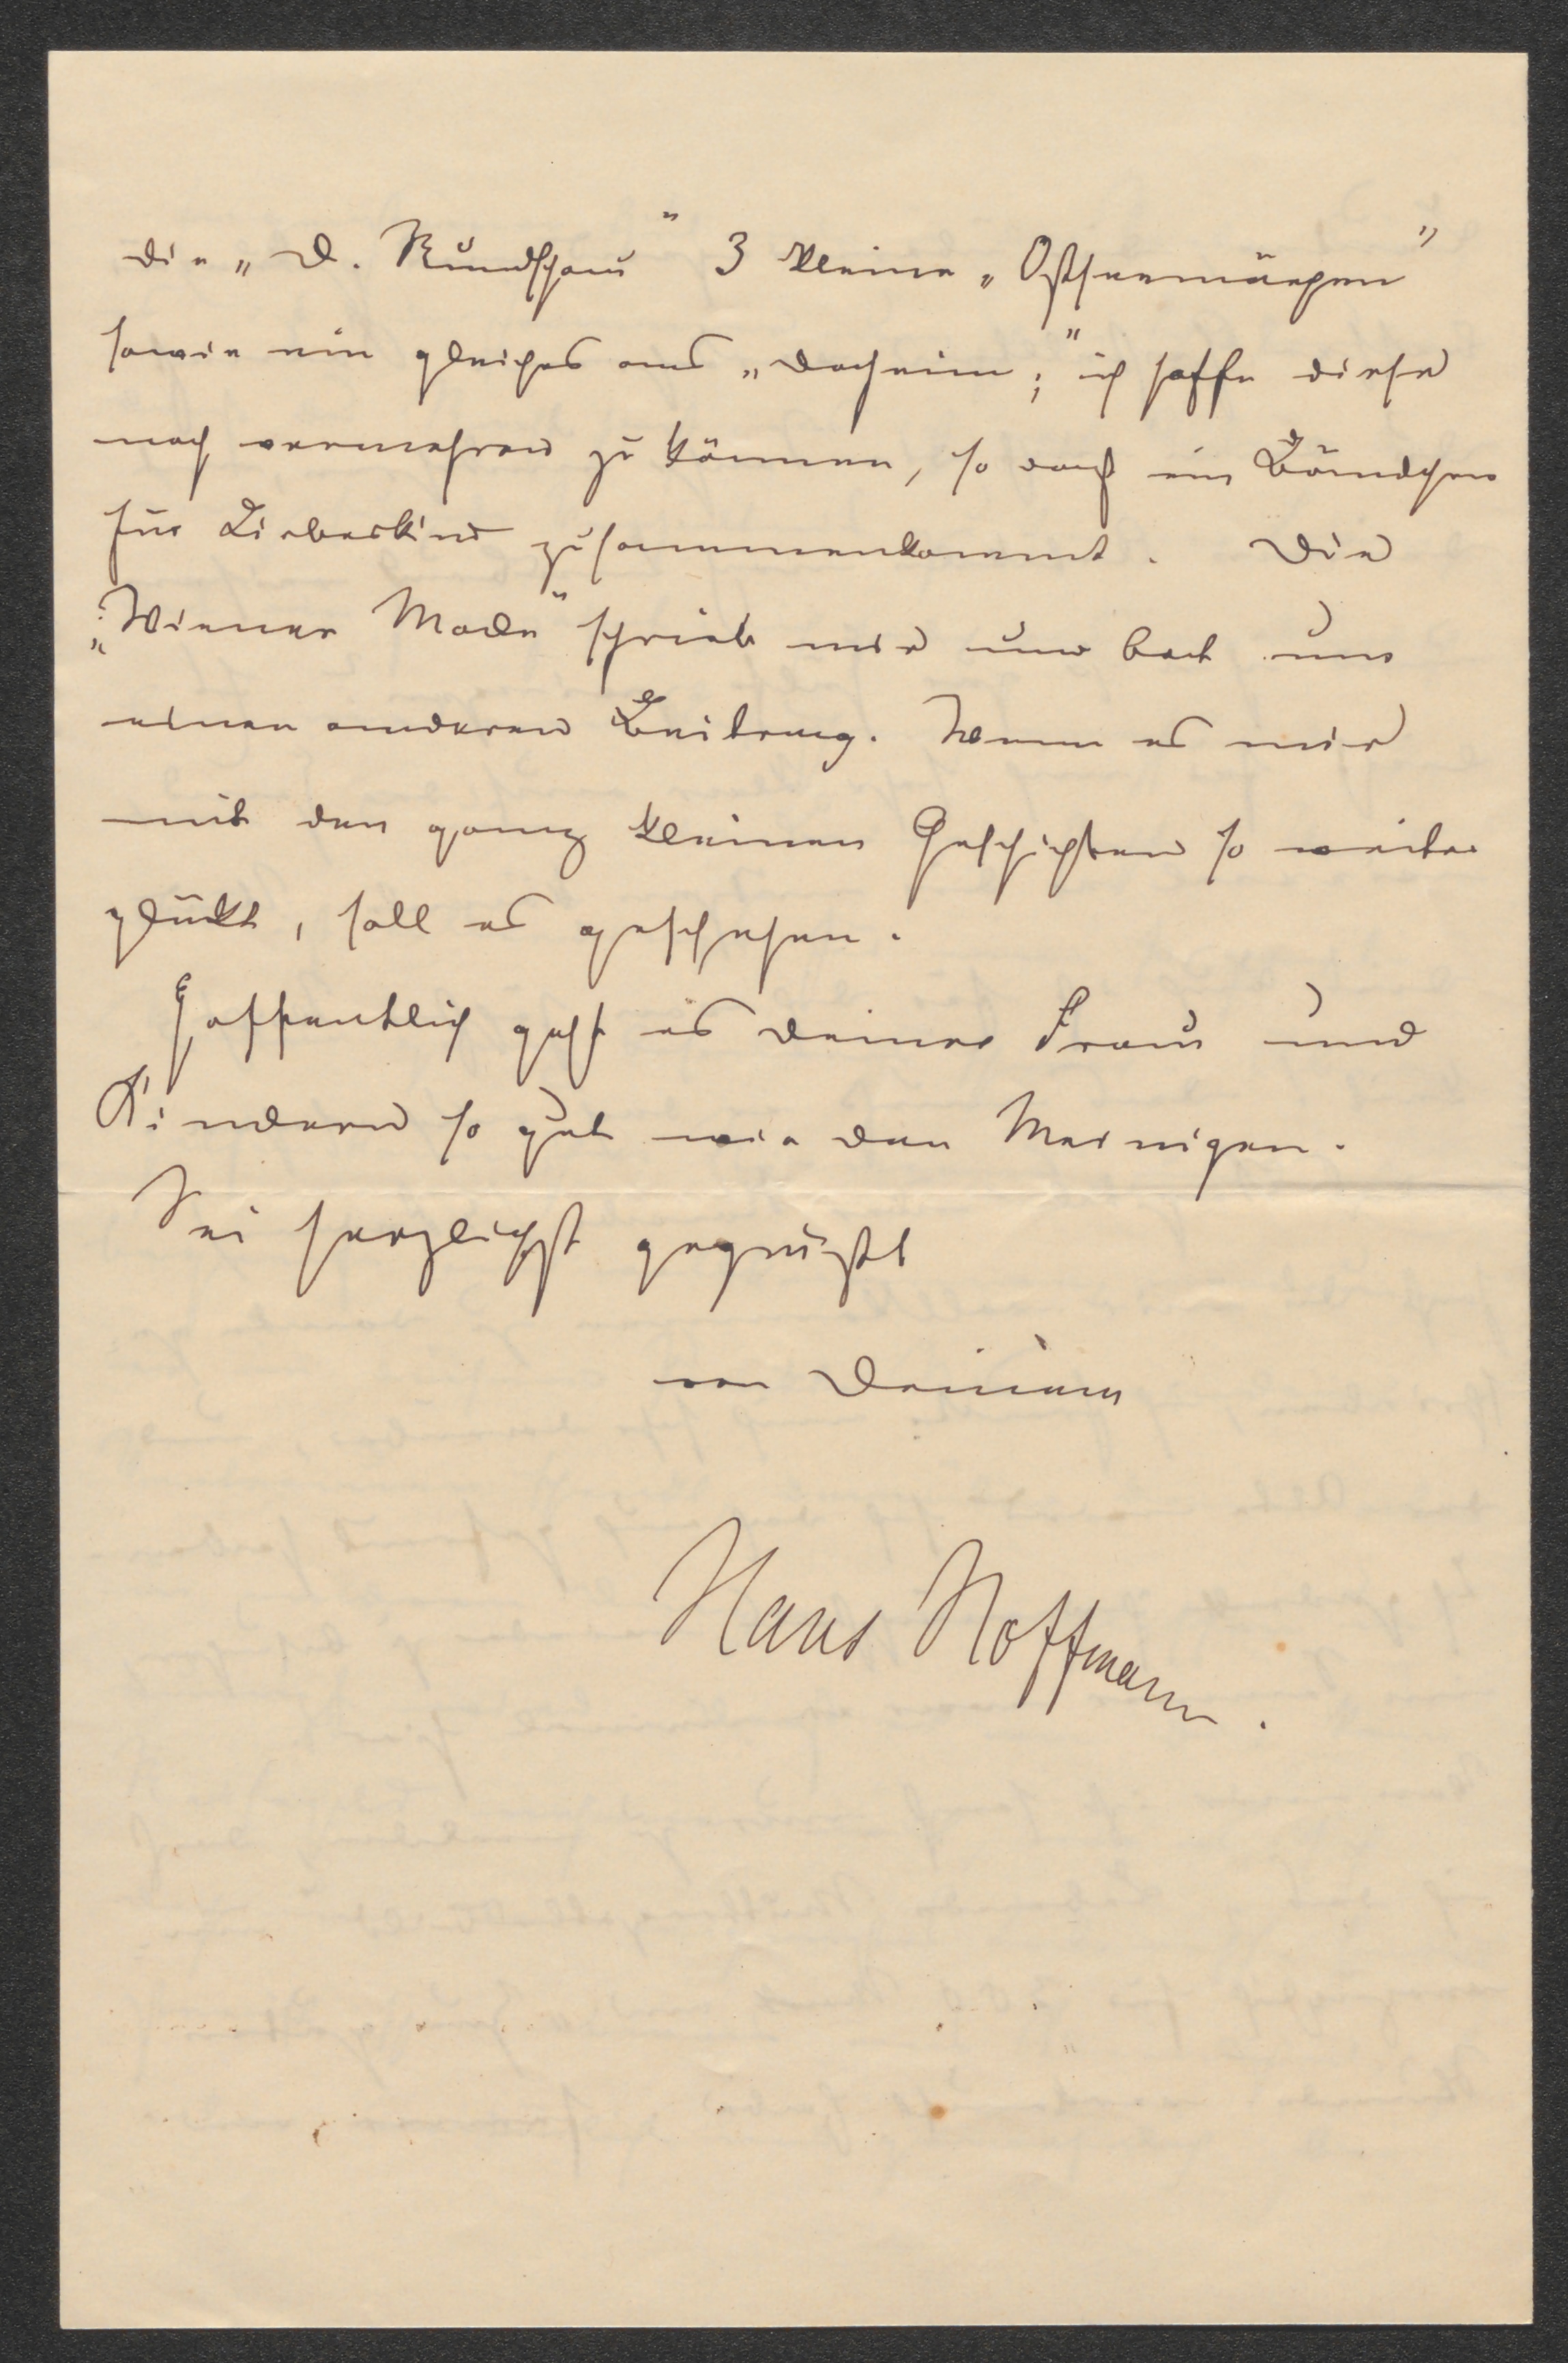 die „D. Rundschau“ 3 kleine „Ostseemärchen“
sowie ein gleiches ans „Daheim;“ ich hoffe diese
noch vermehren zu können, so daß ein Bändchen
für Liebeskind zusammenkommt. Die
„Wiener Mode“ schrieb mir und bat um
einen anderen Beitrag. Wenn es mir
mit den ganz kleinen Geschichten so weiter
glückt, soll es geschehen.
Hoffentlich geht es Deiner Frau und
Kindern so gut wie den Meinigen.
Sei herzlichst gegrüßt
von Deinem
Hans Hoffmann.